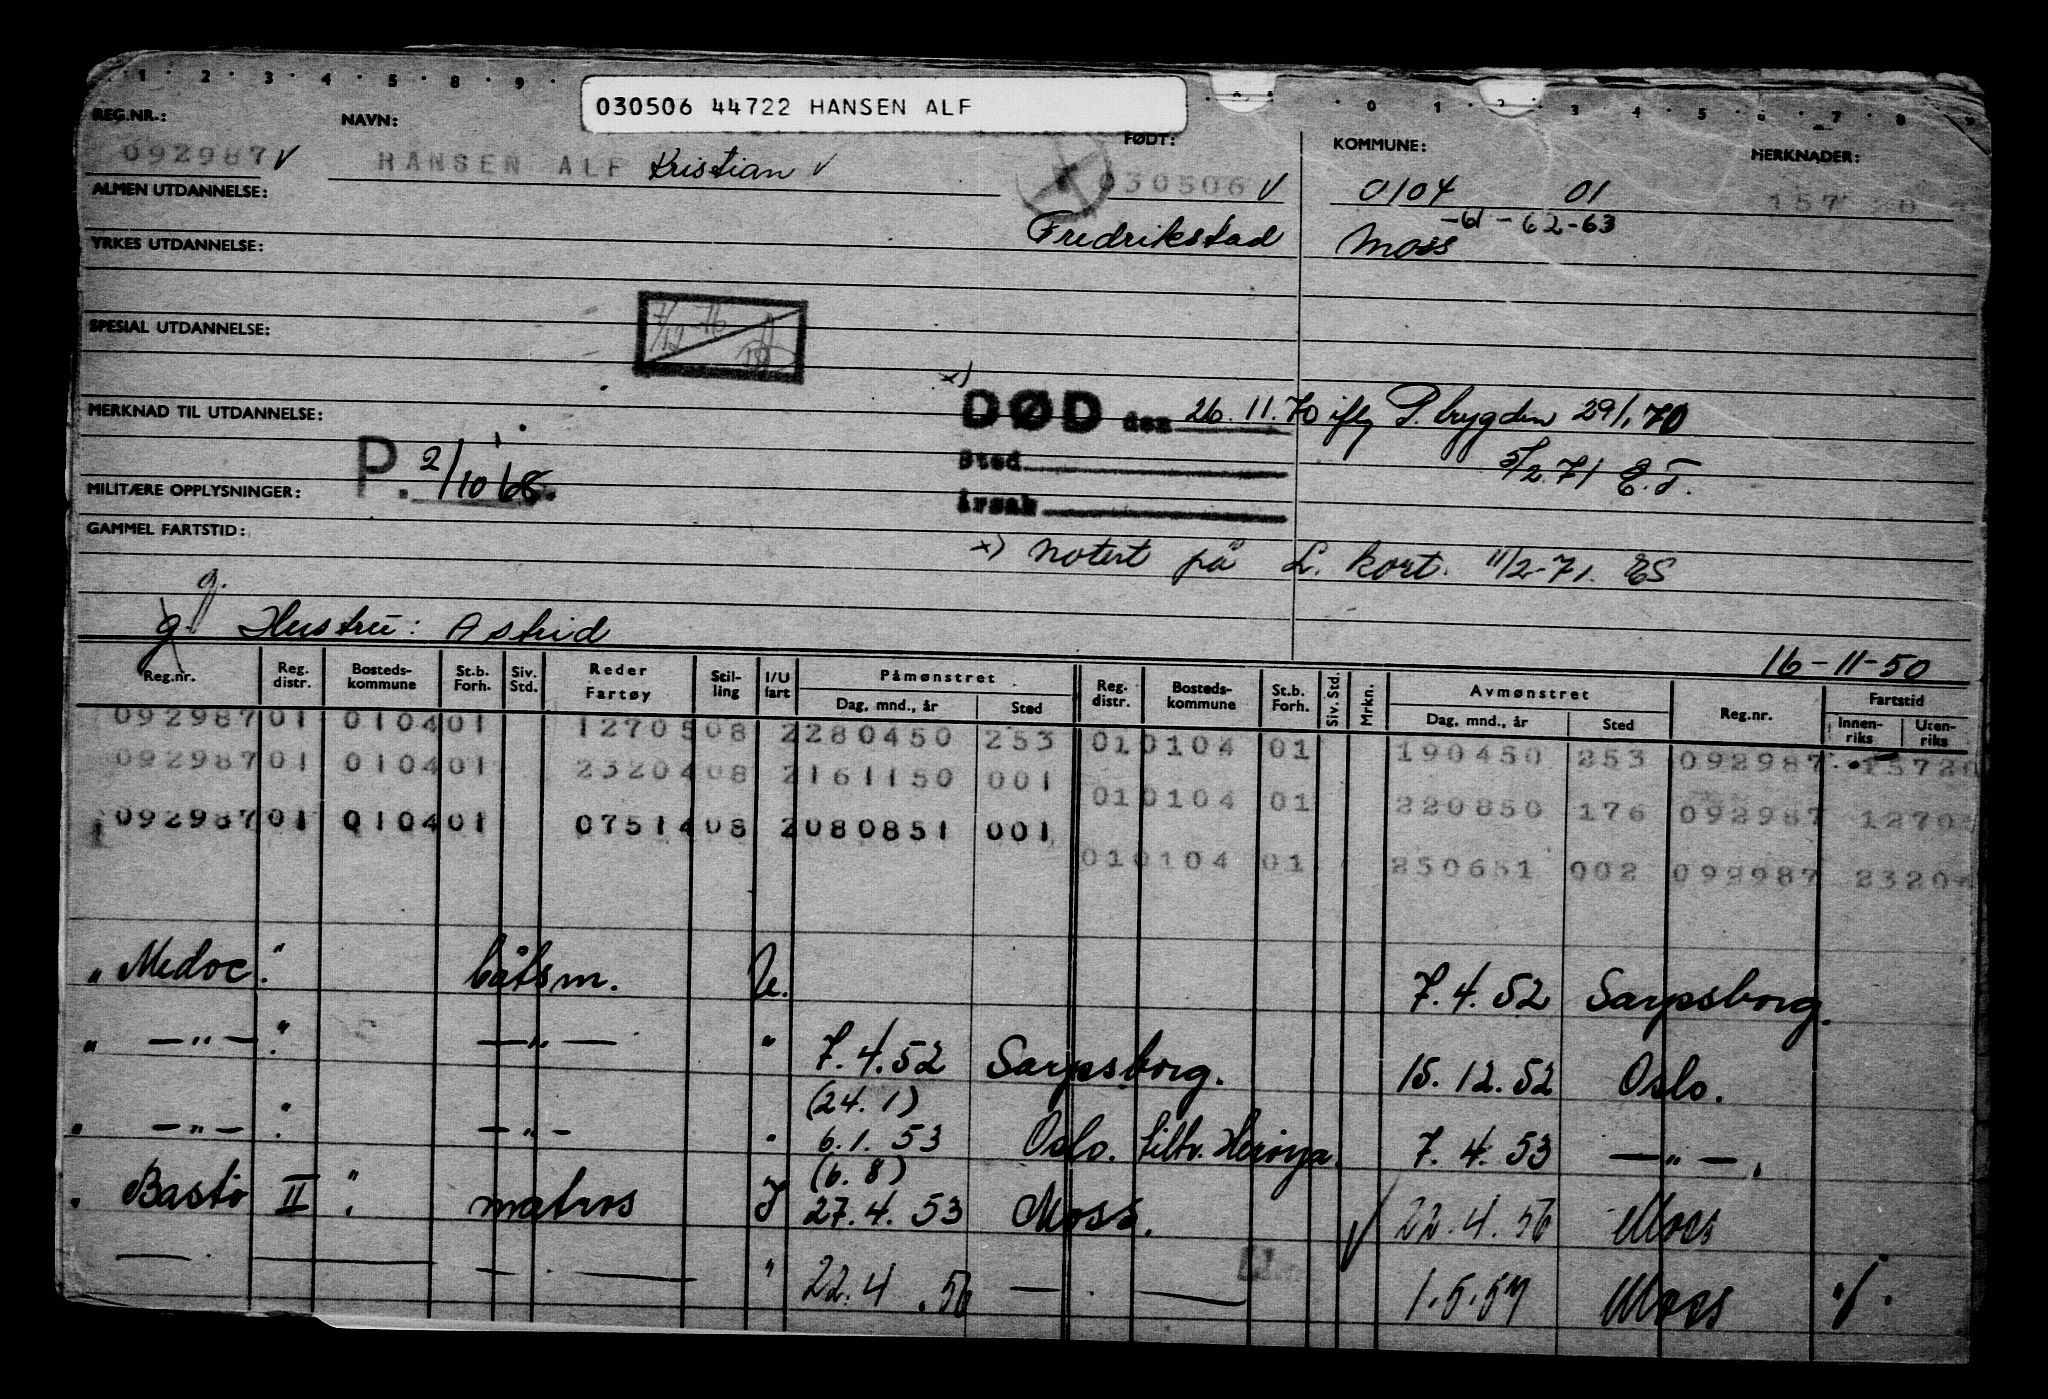 1 · 2 · 3 · 4 · 5 · 8 · 9 · 0 · 1 · 2 · 3 · 4 · 5 · 6 · 7 · 8 · 9
030506 44722 HANSEN ALF
REG.NR.: NAVN: FØDT: KOMMUNE: MERKNADER:
092987 V HANSEN ALF Kristian V 030506 V 0104 01 157 20
ALMEN UTDANNELSE:
-61-62-63
Fredrikstad Moss
YRKES UTDANNELSE:
SPESIAL UTDANNELSE:
7/12
x)
DØD den 26.11.70 iflg P. brygden 29/1.70
MERKNAD TIL UTDANNELSE:
Sted 5/2.71 E.T.
P. 2/10 68.
MILITÆRE OPPLYSNINGER:
årsak
GAMMEL FARTSTID:
x) notert på L. kort. 11/2-71. ES
g.
g. Hustru: Astrid
16-11-50
Reg.nr. Reg. distr. Bosteds-kommune St.b. Forh. Siv. Std. Reder Fartøy Stil-ling I/U fart Påmønstret Dag, mnd., år Sted Reg. distr. Bosteds-kommune St.b. Forh. Siv. Std. Mrkn. Avmønstret Dag, mnd., år Sted Reg.nr. Fartstid Innen-riks Uten-riks
092987 01 0104 01 12705 08 2 280450 253 01 0104 01 190450 253 092987 1572
092987 01 0104 01 23204 08 2 161150 001 01 0104 01 220850 176 092987 1270
092987 01 0104 01 07514 08 2 080851 001 01 0104 01 250651 002 092987 2320
" Medoc " båtsm. U. 7.4.52 Sarpsborg.
" —"— " —"— " 7.4.52 Sarpsborg. 15.12.52 Oslo.
(24.1)
" —"— " —"— " 6.1.53 Oslo. tiltr. Herøya. 7.4.53 —"—.
(6.8)
" Bastø II " matros I 27.4.53 Moss. V 22.4.56 Moss
— . — — . — " 22.4.56 — . — 1.5.57 Moss ./.